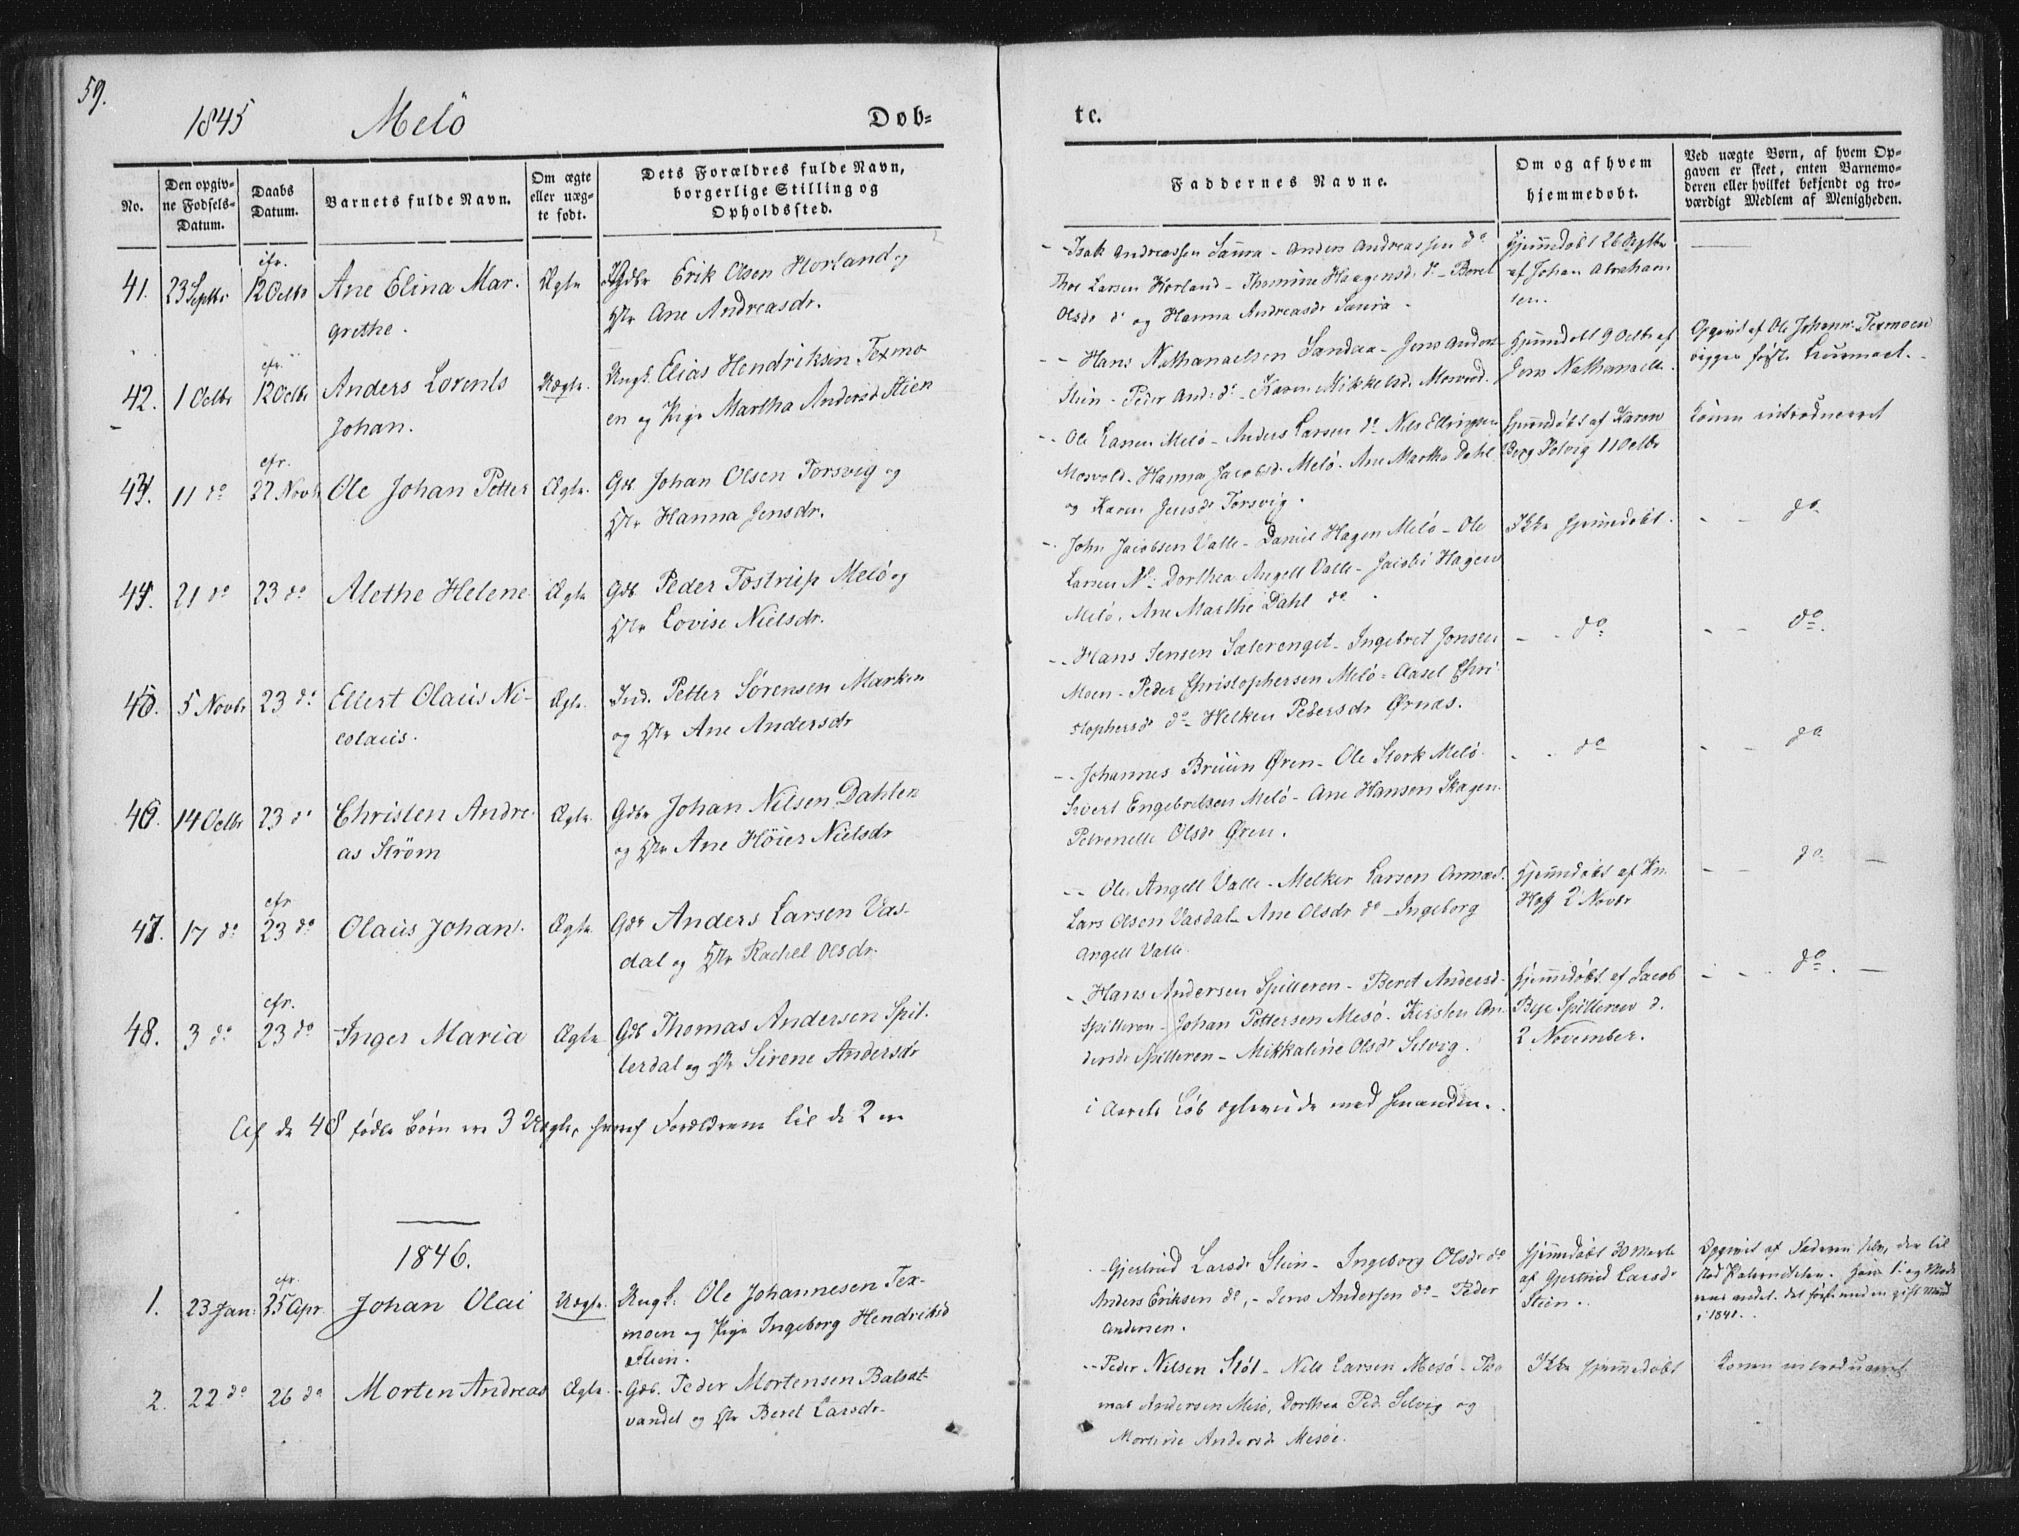 59.
1845 Melö Døb= te.
No.
Den opgiv=
ne Fødsels=
Datum.
Daabs
Datum.
Barnets fulde Navn.
Om ægte
eller uæg=
te født.
Dets Forældres fulde Navn,
borgerlige Stilling og
Opholdssted.
Faddernes Navne.
Om og af hvem
hjemmedøbt.
Ved uægte Børn, af hvem Op=
gaven er skeet, enten Barnemo=
deren eller hvilket bekjendt og tro=
værdigt Medlem af Menigheden.
cfr.
41. 23 Septbr 12 Octbr Ane Elina Mar- Ægte Erik Olsen Horland og
grethe. Ane Andreasdr.
Isak Andreassen Saura - Anders Andreassen do
Thoe Larsen Horland - Haagensdr do - Beret
Olsdr do og Hanna Andreasdr Saura -
Hjemmedöbt 26 Septbr
af Johan Abraham
sen.
cfr.
42. 1 Octbr 12 Octbr Anders Lorents Uægte. Ungk. Elias Hendriksen Texmo
Johan. en og Pige Martha Andersdr Stien
Hans Nathanaelsen Sandaa - Jens Anders.
Stien - Peder And: do - Karen Mikkelsdr Mosvold.
Hjemmedöbt 9 Octbr af
Jens Nathanaels.
Opgivet af Ole Johann. Texmoen
cfr.
43. 11 do 22 Novbr Ole Johan Petter Ægte. Gdb. Johan Olsen Torsvig og
Hanna Jensdr.
Ole Larsen Melö - Anders Larsen do Nils Ellingsen
Mosvold. Hanna Jacobsdr Melö. Ane Martha Dahl
og Karen Jensdr Torsvig.
Hjemmedöbt af Karen
Berg Selvig 11 Octbr
Konen introduceret
44. 21 do 23 do Alethe Helene Ægte Gdb. Peder Tostrup Melö og
Lovise Nielsdr.
John Jacobsen Valle - Daniel Hagen Melö - Ole
Larsen Dorthea Angell Valle - Jacobi Hagen
Melö. Ane Marthe Dahl do.
Ikke hjemmedöbt. - - do
45. 5 Novbr 23 do Ellert Olaus Ni- Ægte. Ind. Petter Sörensen Marken
colaus. og Ane Andersdr
Hans Jensen Sæterenget - Ingebret Jonsen
Moen - Peder Christophersen Melö - Aasel Chri-
stophersdr do - Helken Pedersdr Ørnæs.
- - do - - do.
46. 14 Octbr 23 do Christen Andre- Ægte. Gdbr Johan Nilsen Dahlen
as Ström og Ane Höier Nielsdr
Johannes Bruun Øren - Ole Stork Melö.
Sivert Engebretsen Melö - Ane Hansen Skagen.
Petronelle Olsdr Øren.
- - do - - do
cfr
47. 17 do 23 do Olaus Johan. Ægte. Gdbr Anders Larsen Vas-
dal og Rachel Olsdr.
Ole Angell Valle - Melker Larsen
Lars Olsen Vasdal - Ane Olsdr do - Ingeborg
Angell Valle.
Hjemmedöbt af
Hoff 2 Novbr
- - do -
cfr.
48. 3 do 23 do Inger Maria Ægte Gdb Thomas Andersen Spil-
lerdal og Sirene Andersdr
Hans Andersen Spilleren - Beret Andersd.
Spilleren - Johan Pettersen Mesö. Kirsten An-
dersdr Spilleren - Mikkaline Olsdr Selvig.
Hjemmedöbt af Jacob
Bye Spilleren d.
2 November.
- - do. -
Af de 48 födte Börn ere 3 Uægte, hvoraf Forældrene til de 2 ere
i Aarets Löb med hinanden.
1846.
cfr.
1. 23 Jan: 25 Apr Johan Olai Uægte. Ungk: Ole Johannesen Tex-
moen og Pige Ingeborg Hendriksd
Stien.
Gjertrud Larsdr Stien - Ingeborg Olsdr do
Anders Eriksen do, - Jens Andersen do - Peder
Andersen.
Hjemmedöbt 30 Marts
af Gjertrud Larsdr
Stien.
Opgivet af Faderen selv, der til
stod Paterniteten. Hans 1. og Mode
rens andet. det förste med en gift Mand
i 1841.
2. 22 do 26 do Morten Andreas Ægte. Gdb. Peder Mortensen Balsat-
vandet og Beret Larsdr
Peder Nilsen Stöt - Nils Larsen Mesö - Tho
mas Andersen Mesö, Dorthea Ped. Selvig og
Mortine Andersdr Mesöe.
Ikke hjemmedöbt
Konen introduceret